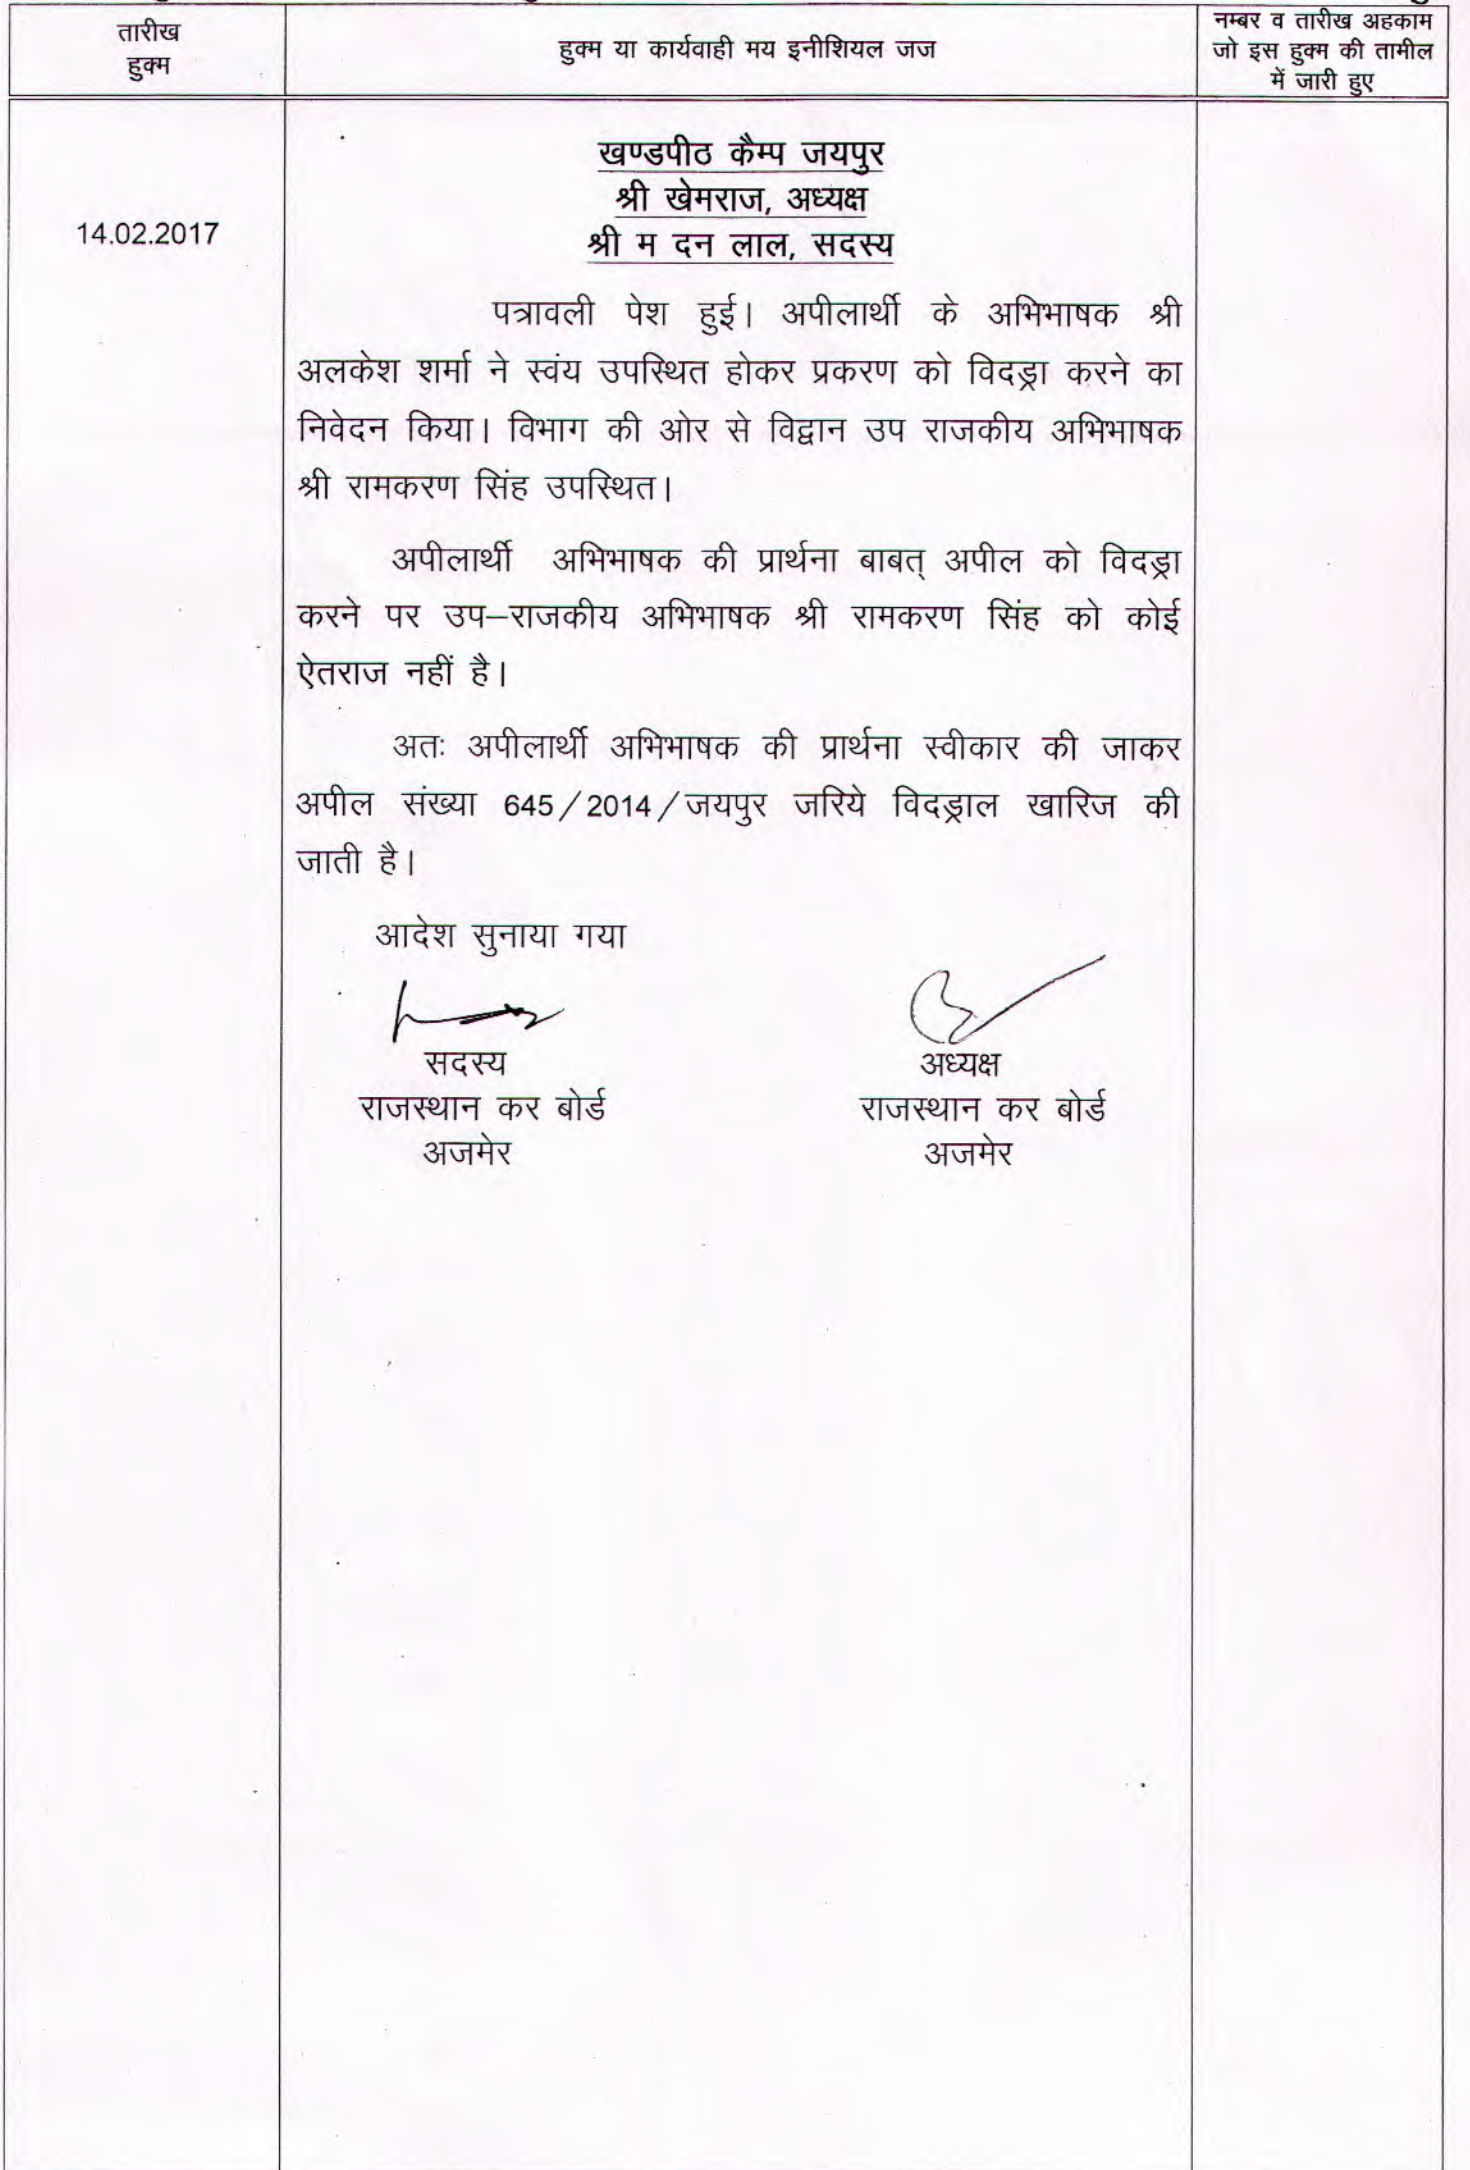 तारीख
हुक्म
हुक्म या कार्यवाही मय इनीशियल जज
नम्बर व तारीख अहकाम
जो इस हुक्म की तामील
में जारी हुए
खण्डपीठ कैम्प जयपुर
श्री खेमराज, अध्यक्ष
14.02.2017
श्री म दन लाल, सदस्य
पत्रावली पेश हुई। अपीलार्थी के अभिभाषक श्री
अलकेश शर्मा ने स्वंय उपस्थित होकर प्रकरण को विदड्रा करने का
निवेदन किया। विभाग की ओर से विद्वान उप राजकीय अभिभाषक
श्री रामकरण सिंह उपस्थित।
अपीलार्थी अभिभाषक की प्रार्थना बाबत् अपील को विदड्रा
करने पर उप–राजकीय अभिभाषक श्री रामकरण सिंह को कोई
ऐतराज नहीं है।
अतः अपीलार्थी अभिभाषक की प्रार्थना स्वीकार की जाकर
अपील संख्या 645/2014/जयपुर जरिये विदड्राल खारिज की
जाती है।
आदेश सुनाया गया
सदस्य
राजस्थान कर बोर्ड
अजमेर
अध्यक्ष
राजस्थान कर बोर्ड
अजमेर